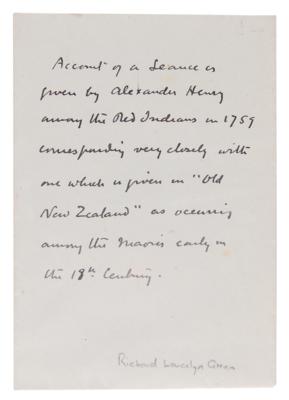 Account of a Seance is
given by Alexander Henry
among the Red Indians in 1759
corresponding very closely with
one which is given in "Old
New Zealand" as occurring
among the Maoris early in
the 19th Century.
Richard Lancelyn Green